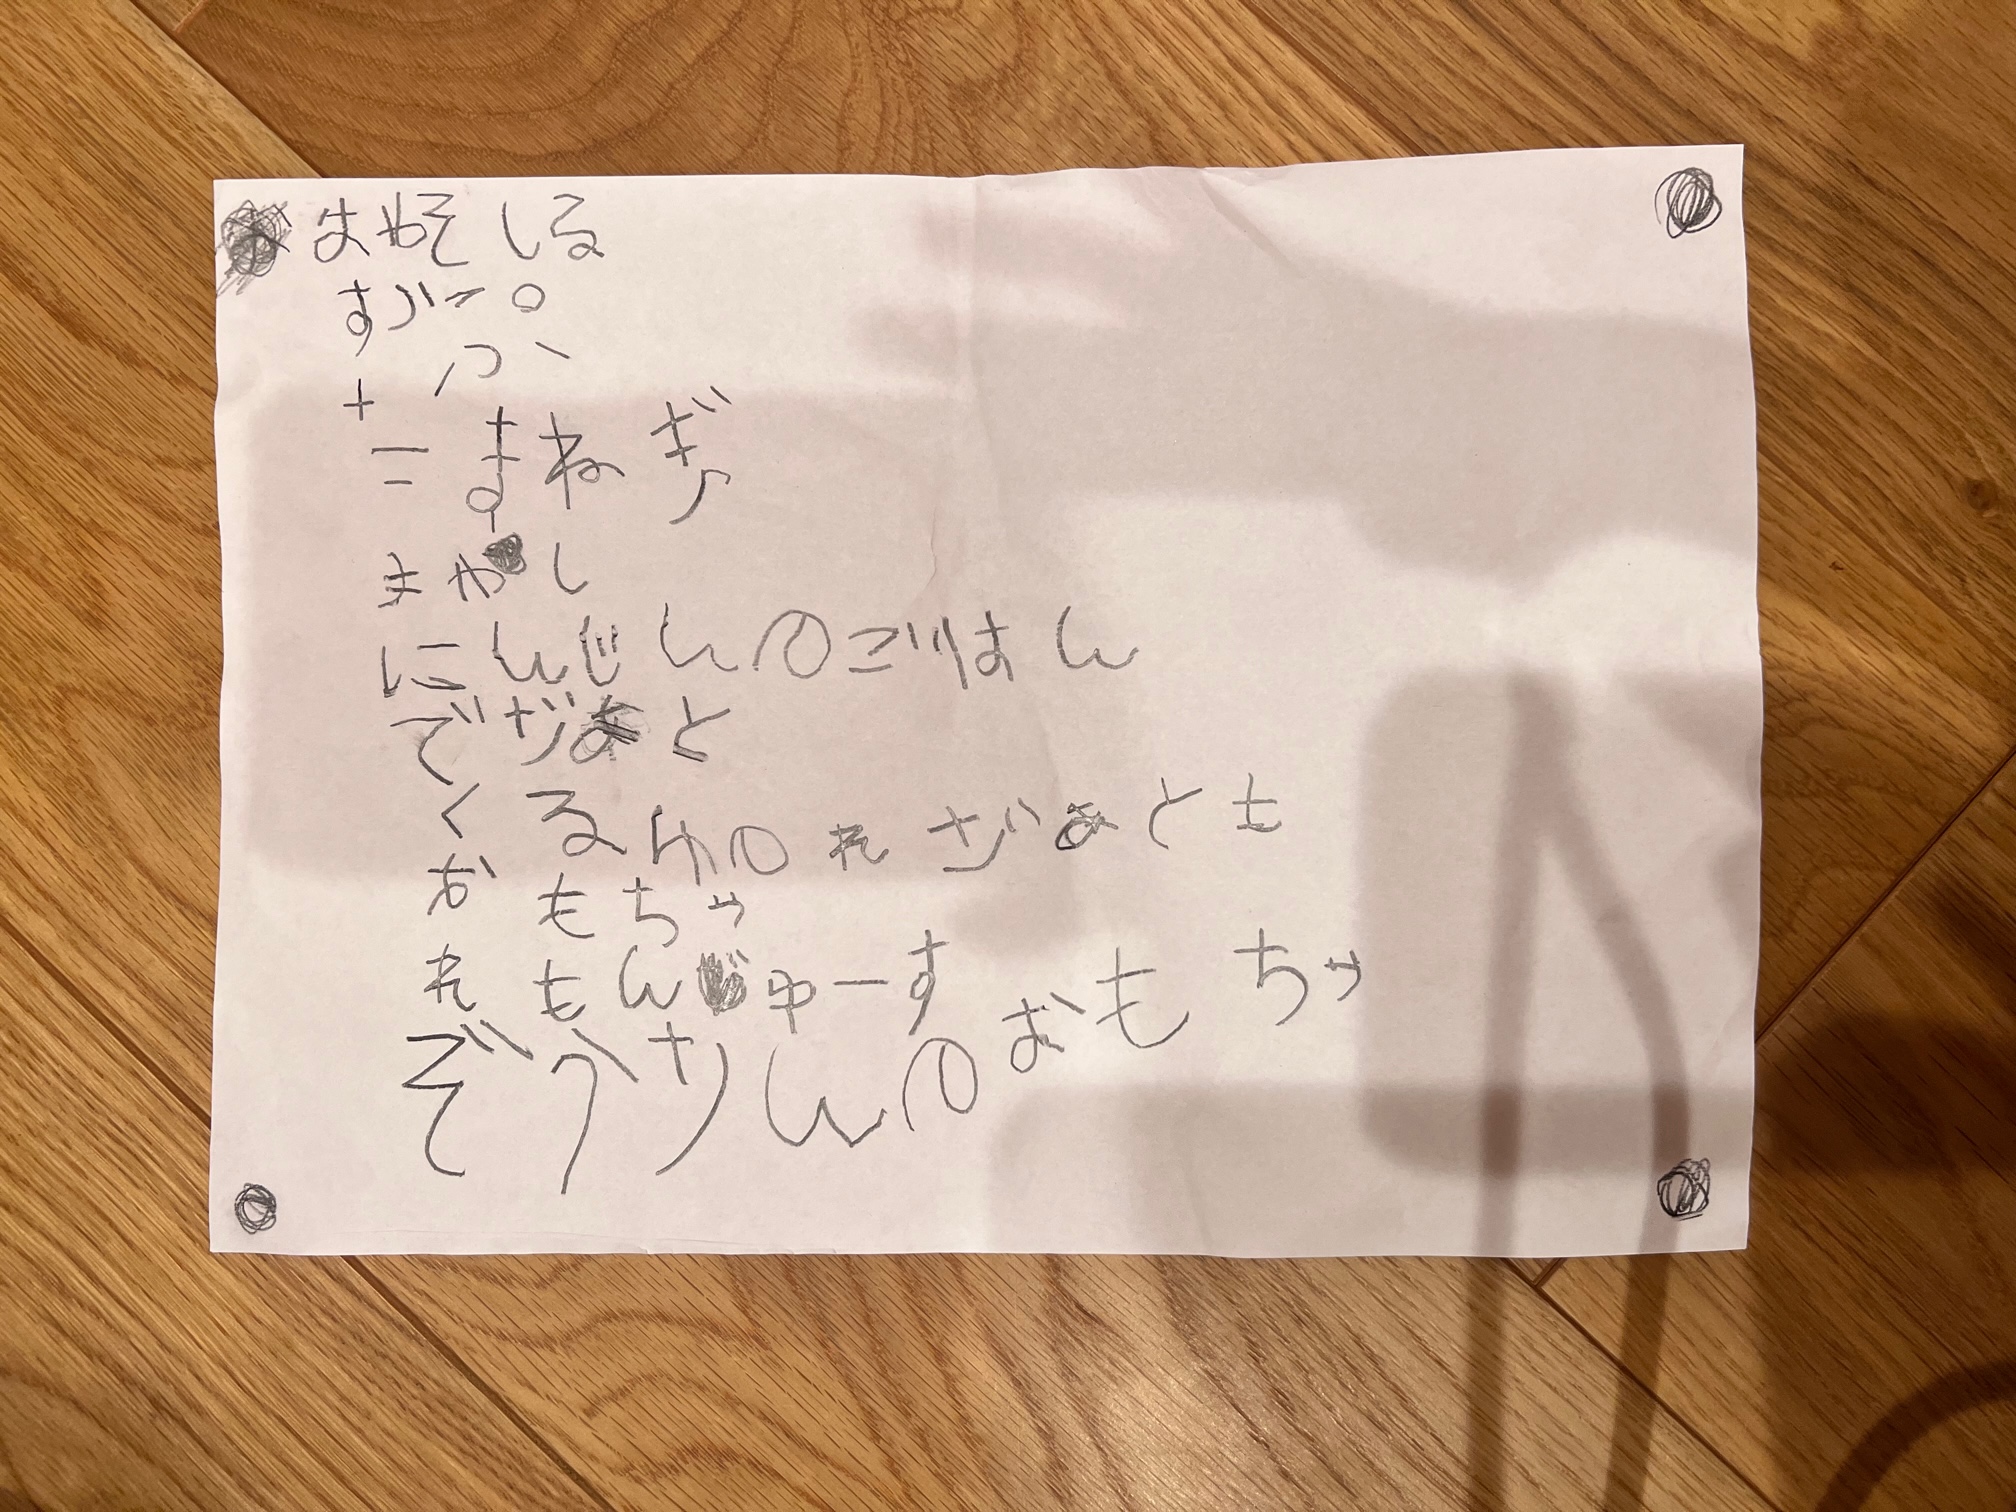 おみそしる
すぶーつ
たまねぎ
もやし
にんじんのごはん
でざぁと
くるみのれざぁとも
おもちゃ
れもんじゅーす
ぞうさんのおもちゃ